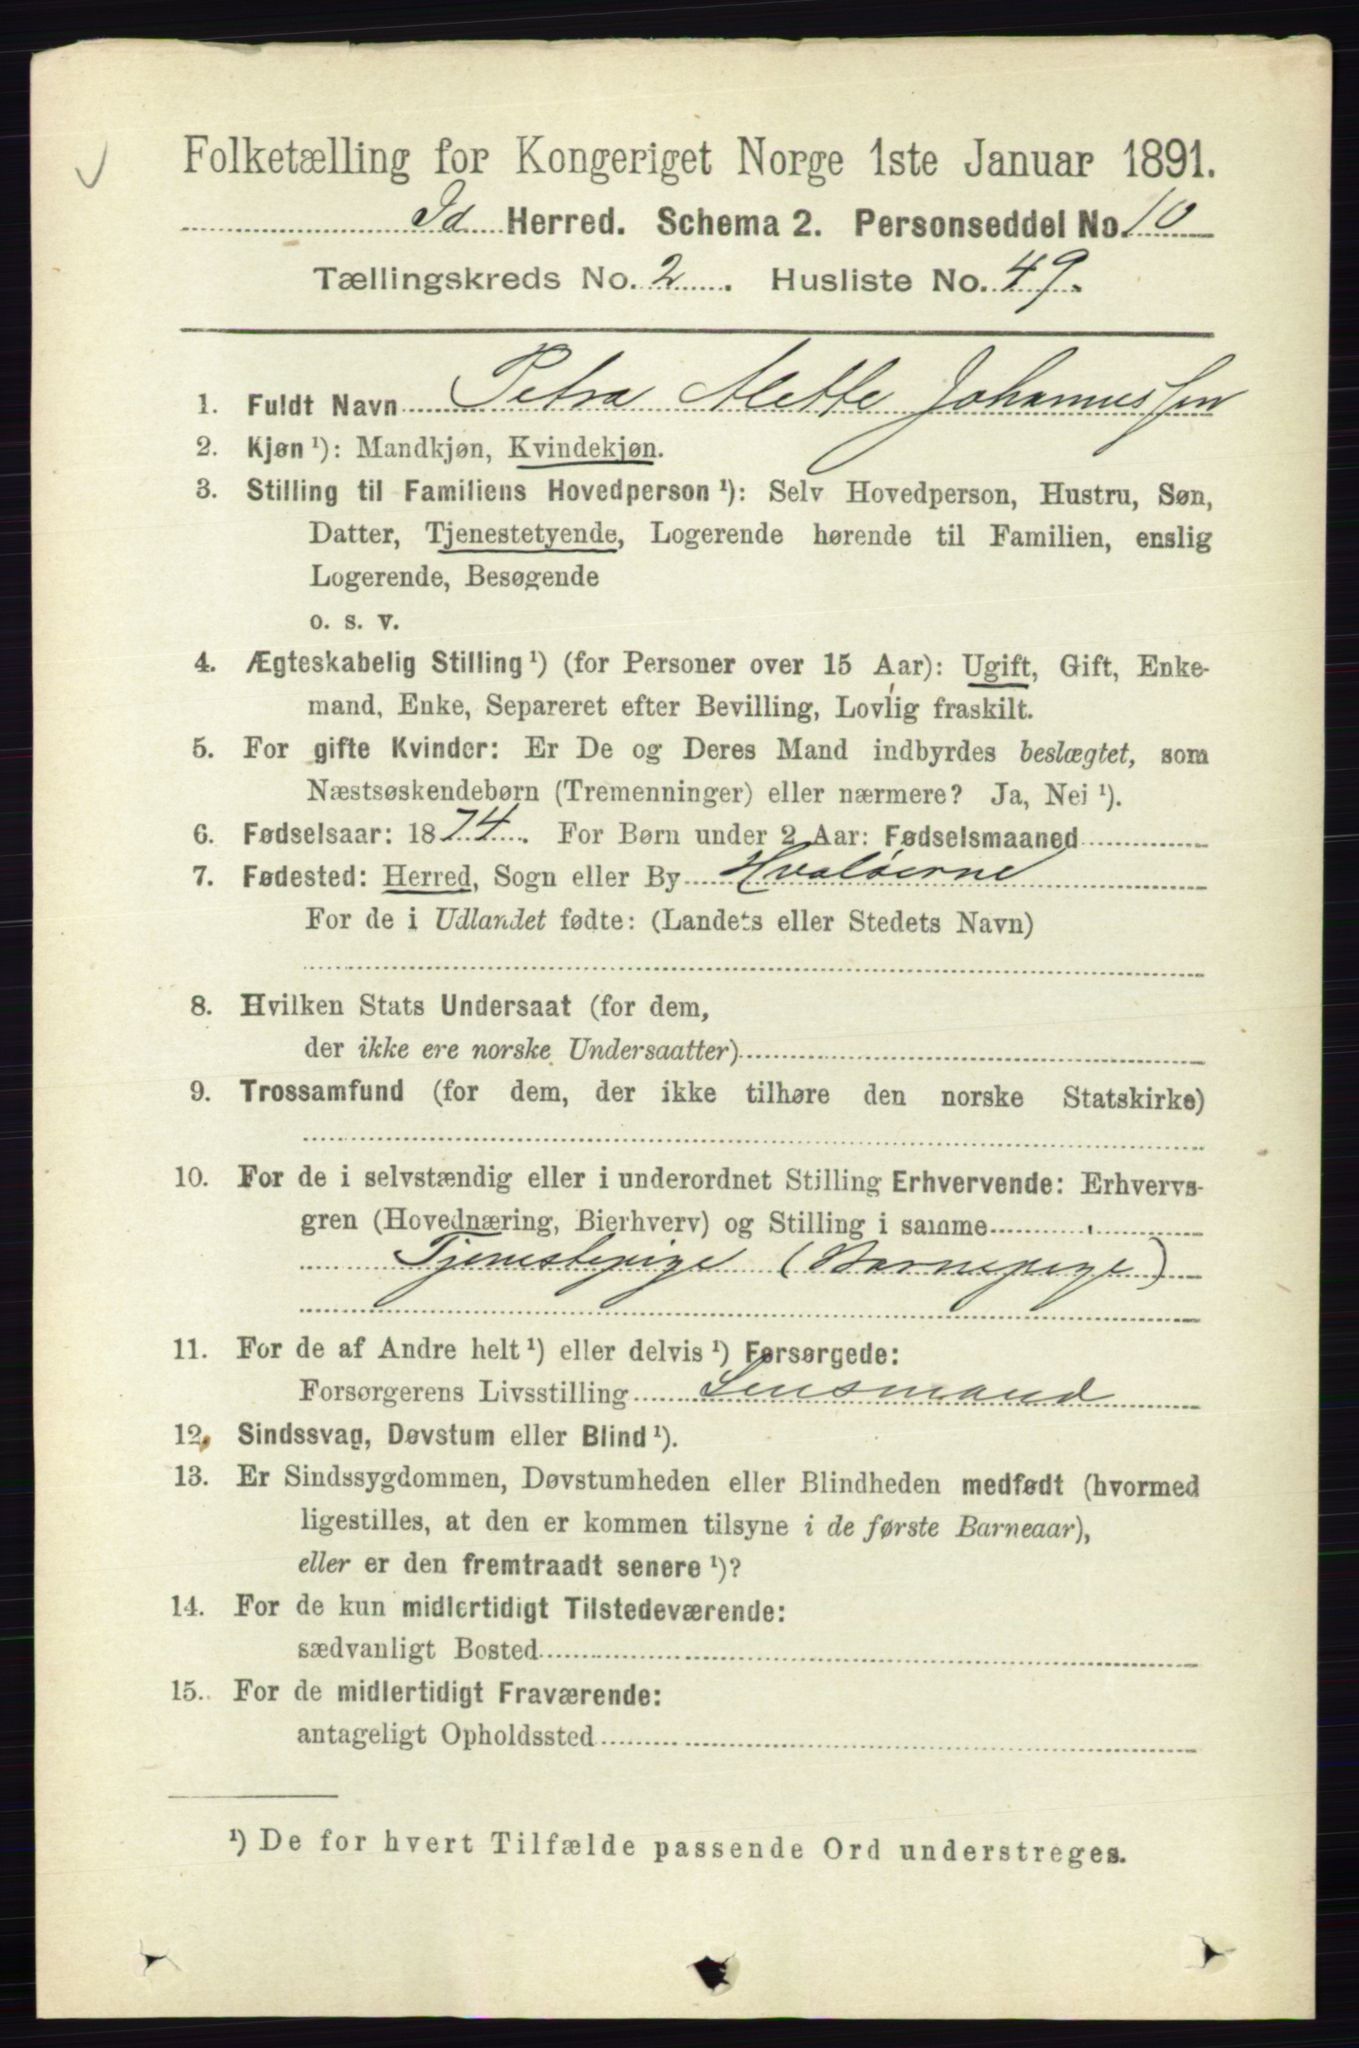 Folketælling for Kongeriget Norge 1ste Januar 1891.
Id Herred. Schema 2. Personseddel No. 10
Tællingskreds No. 2. Husliste No. 49.
1. Fuldt Navn Petra Alette Johannessen
2. Kjøn ¹): Mandkjøn, Kvindekjøn.
3. Stilling til Familiens Hovedperson ¹): Selv Hovedperson, Hustru, Søn,
Datter, Tjenestetyende, Logerende hørende til Familien, enslig
Logerende, Besøgende
o. s. v.
4. Ægteskabelig Stilling ¹) (for Personer over 15 Aar): Ugift, Gift, Enke-
mand, Enke, Separeret efter Bevilling, Lovlig fraskilt.
5. For gifte Kvinder: Er De og Deres Mand indbyrdes beslægtet, som
Næstsøskendebørn (Tremenninger) eller nærmere? Ja, Nei ¹).
6. Fødselsaar: 1874. For Børn under 2 Aar: Fødselsmaaned
7. Fødested: Herred, Sogn eller By Hvaløerne
For de i Udlandet fødte: (Landets eller Stedets Navn)
8. Hvilken Stats Undersaat (for dem,
der ikke ere norske Undersaatter)
9. Trossamfund (for dem, der ikke tilhøre den norske Statskirke)
10. For de i selvstændig eller i underordnet Stilling Erhvervende: Erhvervs-
gren (Hovednæring, Bierhverv) og Stilling i samme
Tjenestepige (Barnepige)
11. For de af Andre helt ¹) eller delvis ¹) Forsørgede:
Forsørgerens Livsstilling Lensmand
12. Sindssvag, Døvstum eller Blind ¹).
13. Er Sindssygdommen, Døvstumheden eller Blindheden medfødt (hvormed
ligestilles, at den er kommen tilsyne i de første Barneaar),
eller er den fremtraadt senere ¹)?
14. For de kun midlertidigt Tilstedeværende:
sædvanligt Bosted
15. For de midlertidigt Fraværende:
antageligt Opholdssted
¹) De for hvert Tilfælde passende Ord understreges.